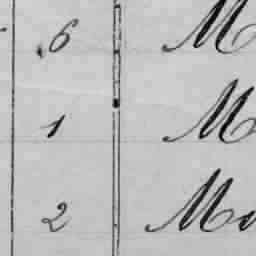 6 M
1 M
2 Mo